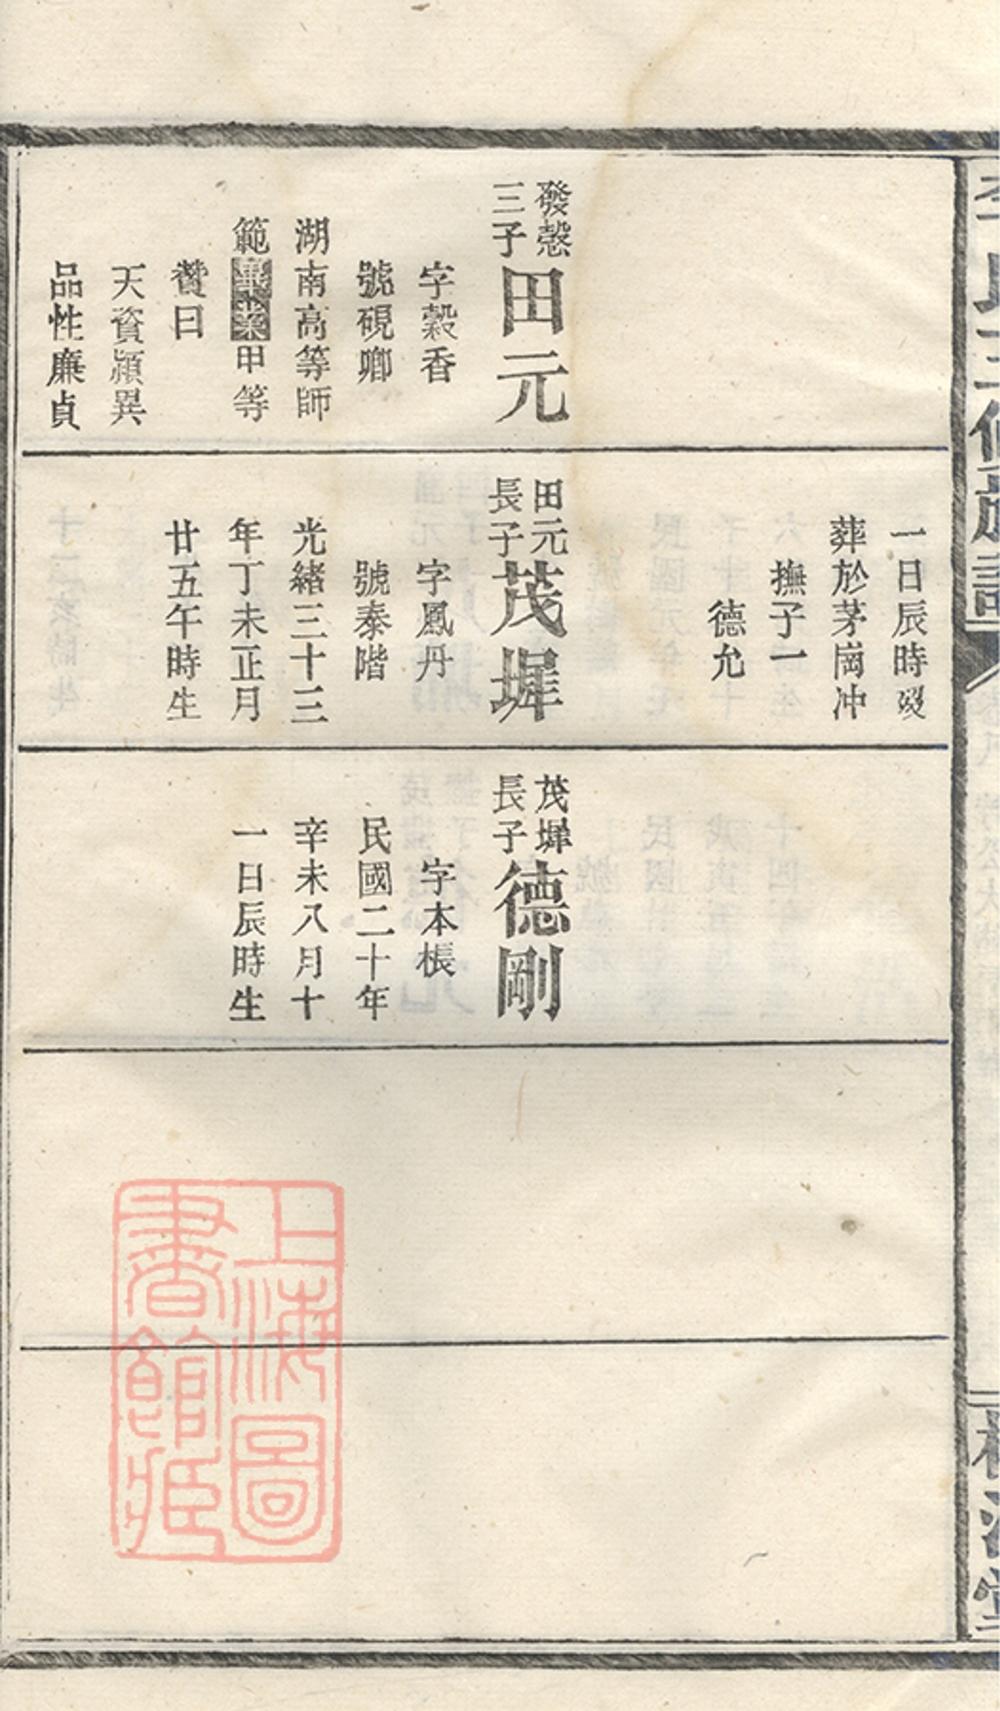 發慤
三子
田元
字穀香
號硯卿
湖南高等師
範畢業甲等
贊曰
天資穎異
品性廉貞
一日辰時歿
葬於茅崗冲
撫子一
德允
田元
長子
茂墀
字鳳丹
號泰階
光緒三十三
年丁未正月
廿五午時生
茂墀
長子
德剛
字本棖
民國二十年
辛未八月十
一日辰時生
上海圖
書館藏